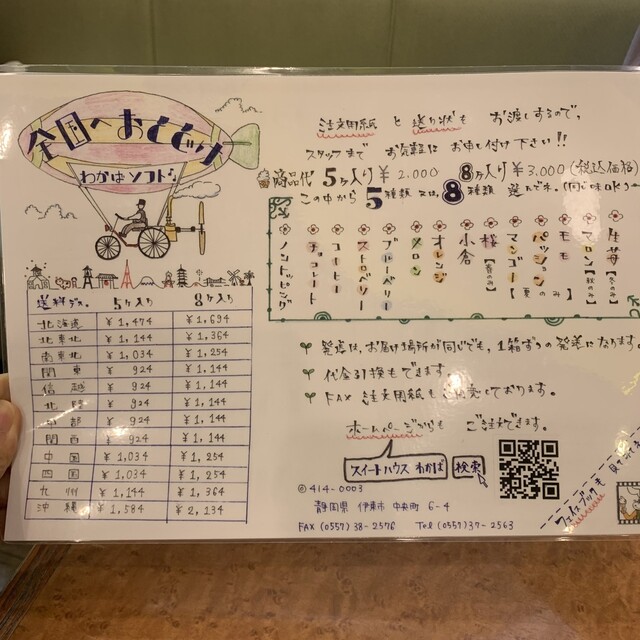 全国へおとどけ
わかばソフトを
注文用紙 と 送り状も お渡しするので、
スタッフまで お気軽に お申し付け下さい!!
商品代 5ヶ入り ¥2.000 8ヶ入り ¥3.000 (税込価格)
この中から 5種類 又は、8種類 選んでネ。(同じ味OK)
ノントッピング
チョコレート
コーヒー
ストロベリー
ブルーベリー
メロン
オレンジ
小倉
桜【春のみ】
マンゴー
パッション
モモ
【夏のみ】
マロン【秋のみ】
生苺【冬のみ】
送料デス。 5ヶ入り 8ヶ入り
北海道 ¥1,474 ¥1,694
北東北 ¥1,144 ¥1,364
南東北 ¥1,034 ¥1,254
関東 ¥924 ¥1,144
信越 ¥924 ¥1,144
北陸 ¥924 ¥1,144
中部 ¥924 ¥1,144
関西 ¥924 ¥1,144
中国 ¥1,034 ¥1,254
四国 ¥1,034 ¥1,254
九州 ¥1,144 ¥1,364
沖縄 ¥1,584 ¥2,134
発送は、お届け場所が同じでも、1箱ずつの発送になります。
代金引換もできます。
FAX 注文用紙も しております。
ホームページからも ご注文できます。
スイートハウス わかば 検索
〒414-0003
静岡県 伊東市 中央町 6-4
FAX (0557)38-2576 Tel (0557)37-2563
フェイスブックも